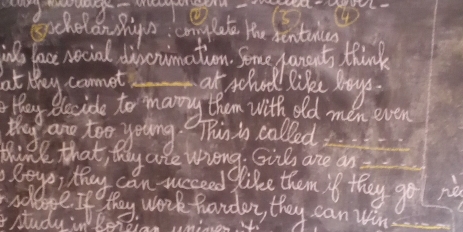 early marriage - intelligent - succeed - clever -
② ③ ④
⑤ scholarships : complete the sentences
girls face social discrimination. Some parents think
that they cannot ------ at school like boys.
so they decide to marry them with old men even
they are too young. This is called ------
think that, they are wrong. Girls are as -----
s boys, they can succeed like them if they go
school. If they work harder, they can win ------
to study in foreign